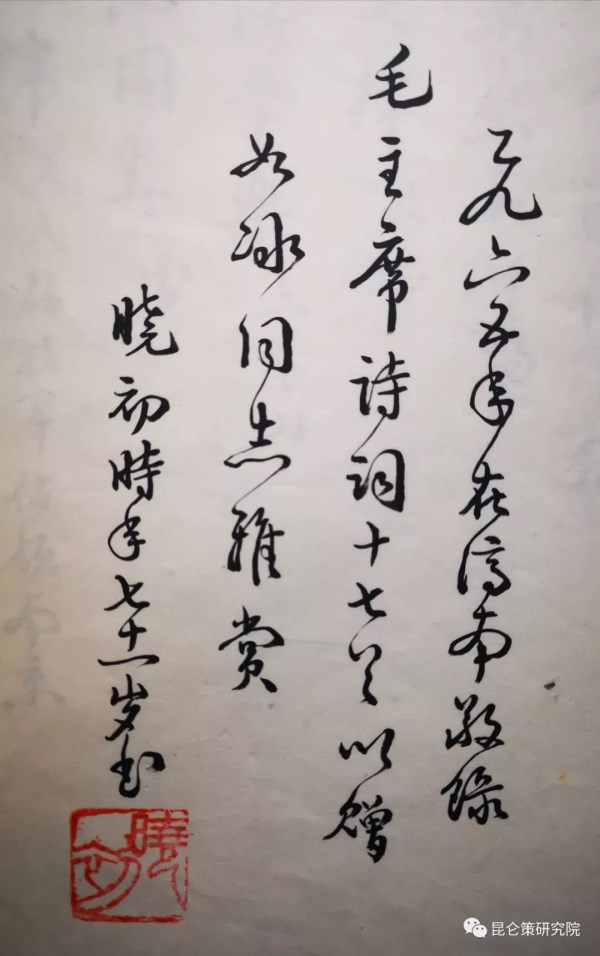 一九六五年在济南敬录
毛主席詩詞十七首以赠
如冰同志雅赏
晓初時年七十一岁书
曉初
昆仑策研究院